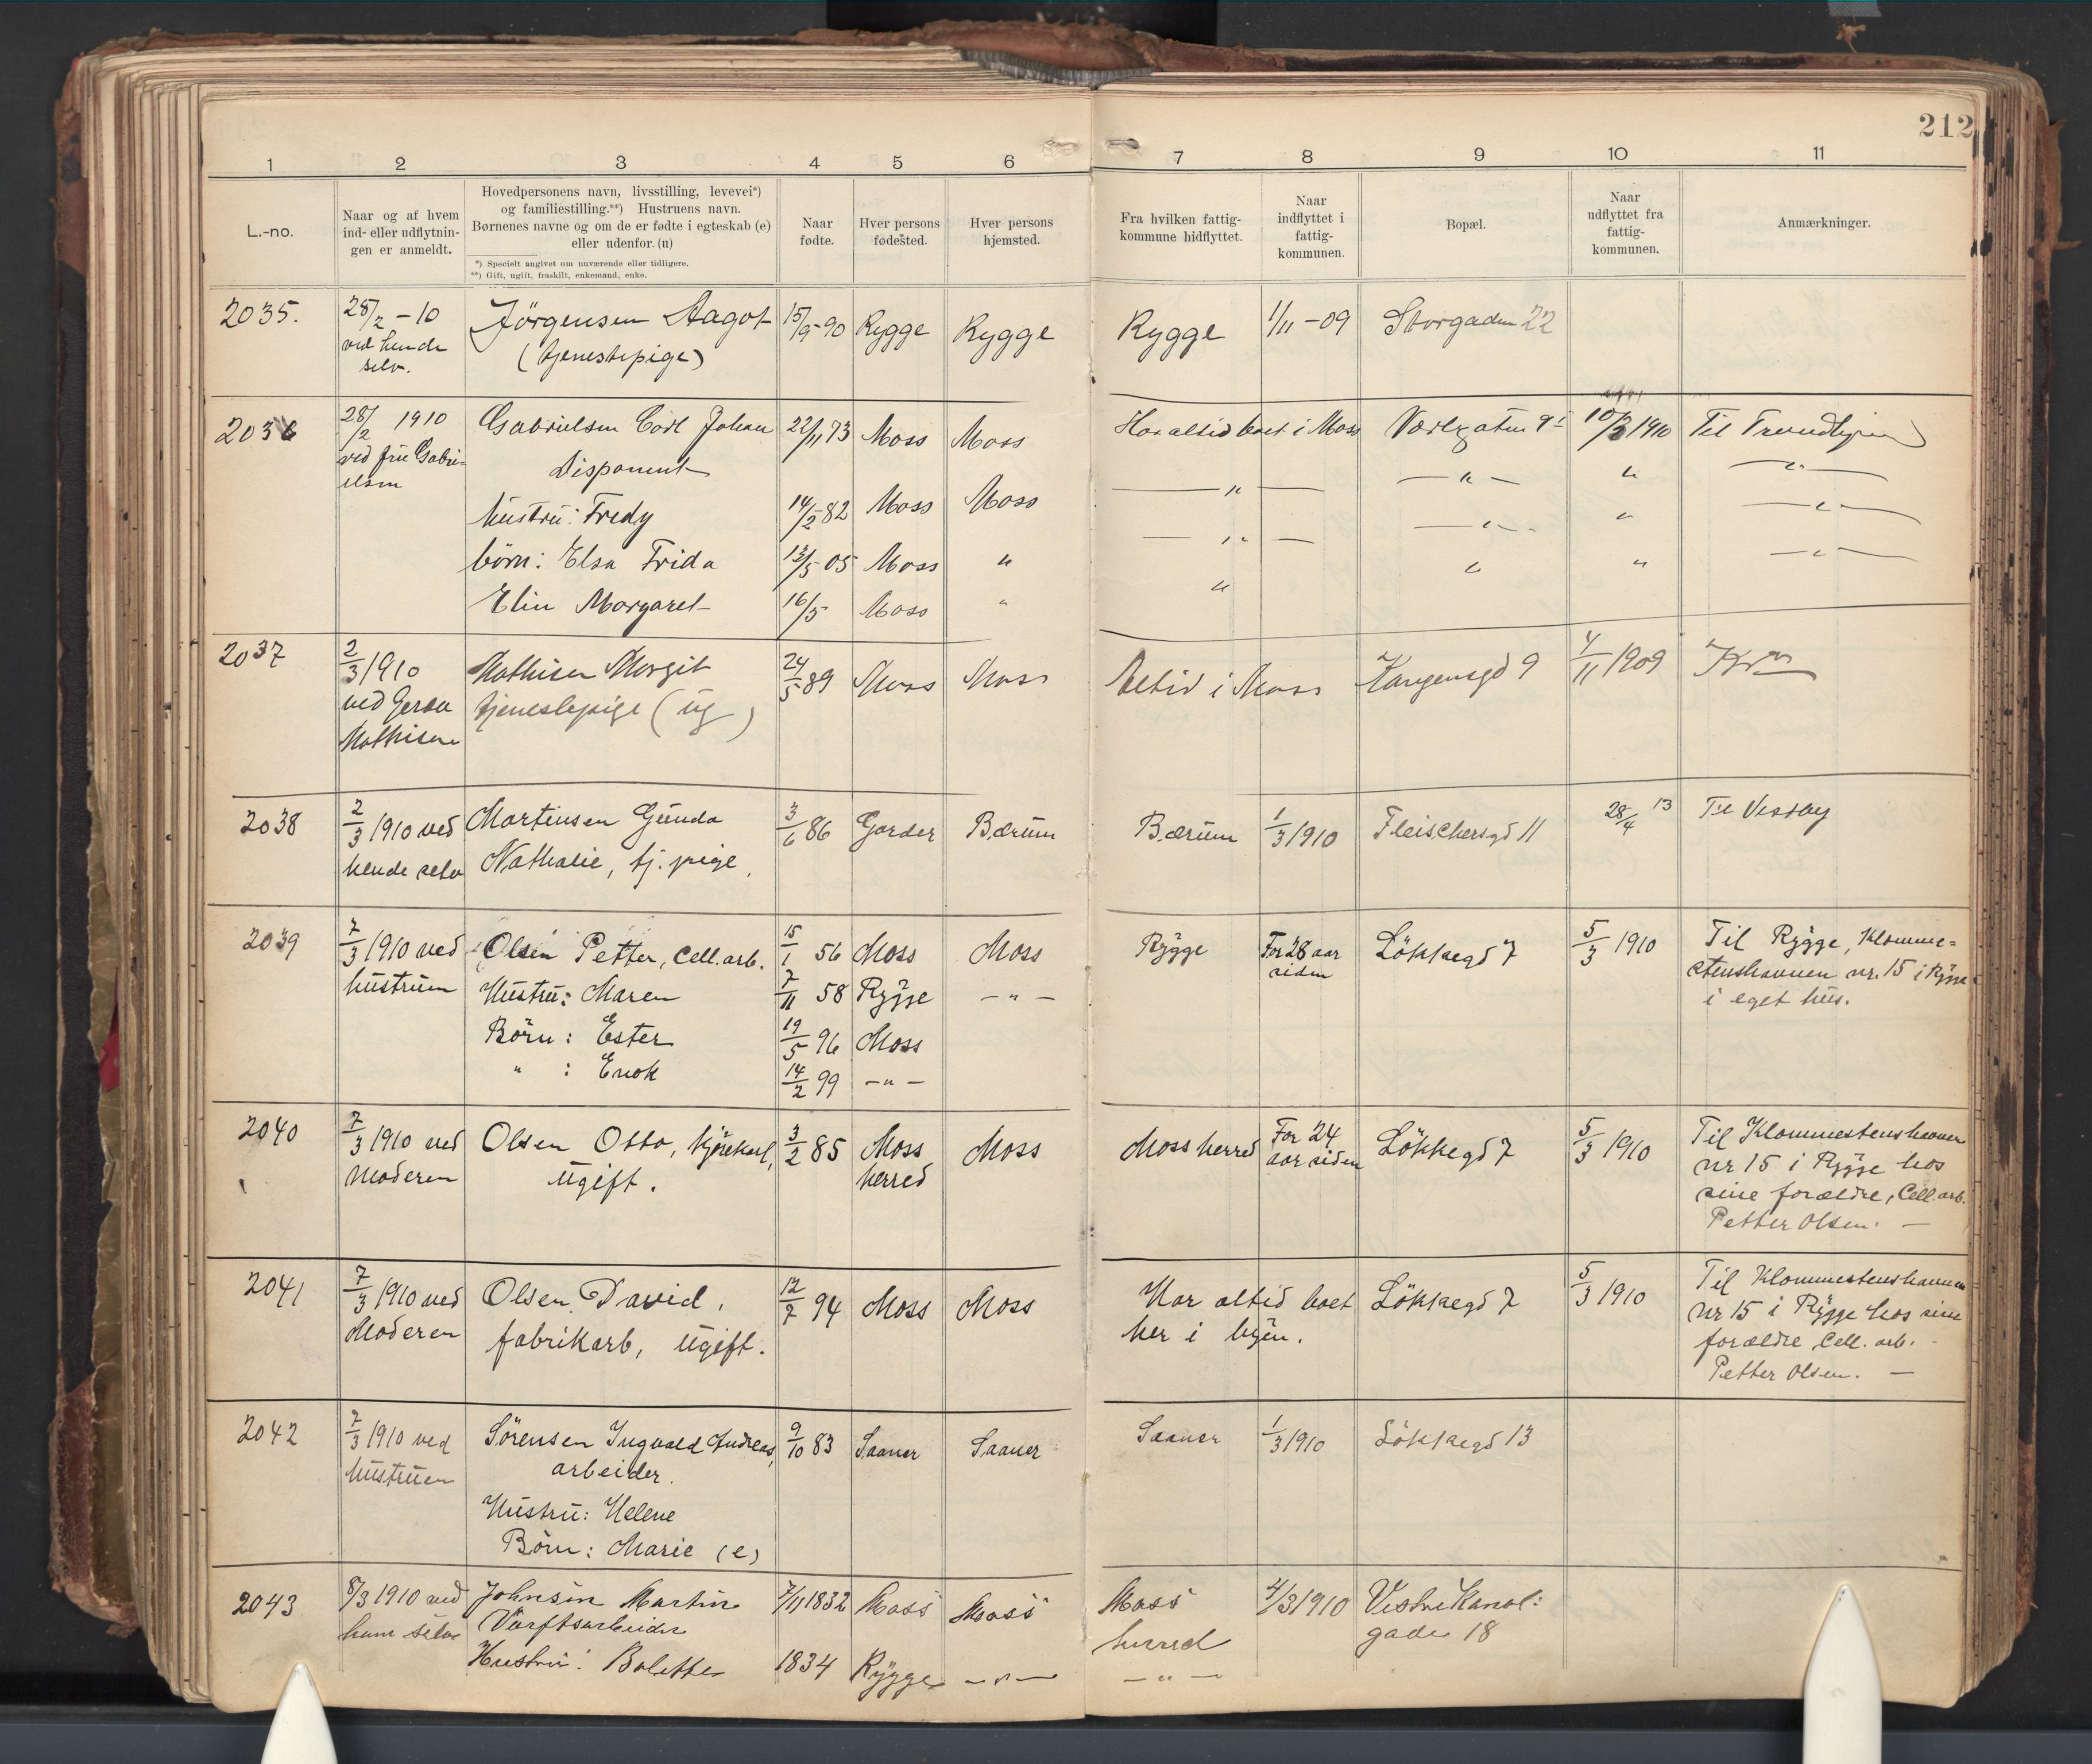 212
1 2 3 4 5 6 7 8 9 10 11
L.-no.
Naar og af hvem
ind- eller udflytnin-
gen er anmeldt.
Hovedpersonens navn, livsstilling, levevei*)
og familiestilling.**) Hustruens navn.
Børnenes navne og om de er fødte i egteskab (e)
eller udenfor. (u)
*) Specielt angivet om nuværende eller tidligere.
**) Gift, ugift, fraskilt, enkemand, enke.
Naar
fødte.
Hver persons
fødested.
Hver persons
hjemsted.
Fra hvilken fattig-
kommune hidflyttet.
Naar
indflyttet i
fattig-
kommunen.
Bopæl.
Naar
udflyttet fra
fattig-
kommunen.
Anmærkninger.
2035. 28/2 - 10 Jörgensen Aagot 15/9-90 Rygge Rygge Rygge 1/11 - 09 Storgaden 22
ved hende (tjenestepige)
selv.
2036 28/2 1910 Gabrielsen Carl Johan 22/11 73 Moss Moss Har altid boet i Moss 10/3 1910 Til
ved frü Gabri- Disponent — " — — " — " — " —
elsen
hüstrü: Fredy 14/2-82 Moss Moss — " — — " — " — " —
börn: Elsa Frida 13/5 05 Moss " " " " — " —
Elin Margaret 16/5 Moss "
2037 2/3 1910 Mathisen Margit 24/5 89 Moss Moss Altid i Moss Kongensgd 9 1/11 1909
ved tjenestepige (üg)
Mathisen
2038 2/3 1910 ved Martinsen Günda 3/6 86 Garder Bærüm Bærüm 1/3 1910 Fleischersgd 11 28/4 13 Til Vestby
hende selv Nathalie, tj. pige,
2039 7/3 1910 ved Olsen Petter, Cell. arb. 15/1 56 Moss Moss Rygge For 28 aar Lökkegd 7 5/3 1910 Til Rygge, Klomme=
hüstruen Hüstrü: Maren 7/11 58 Rygge — " — siden stenshavnen nr. 15 i Rygge
Börn: Ester 19/5 96 Moss i eget hüs.
" : Enok 14/2 99 — " —
2040 7/3 1910 ved Olsen Otto, kjörekarl, 3/2 85 Moss Moss Moss herred For 24 Lökkegd 7 5/3 1910 Til Klommestenshavnen
moderen ügift. herred aar siden nr 15 i Rygge hos
sine forældre, Cell. arb.
Petter Olsen. —
2041 7/3 1910 ved Olsen David, 12/7 94 Moss Moss Har altid boet Lökkegd 7 5/3 1910 Til Klommestenshavnen
Moderen fabrikarb, ügift. her i byen. nr 15 i Rygge hos sine
forældre Cell. arb. -
Petter Olsen. —
2042 7/3 1910 ved Sörensen Ingvald Andreas, 9/10 83 Saaner Saaner Saaner 1/3 1910 Lökkegd 13
hüstrüen arbeider.
Hüstrü: Helene
Börn: Marie (e)
2043 8/3 1910 ved Johnsen Martin 7/11 1832 Moss Moss Moss 4/3 1910 Vestre Kanal:
ham selv Værftsarbeider herred gade 18
Hustrü: Bolette 1834 Rygge — " — — " —